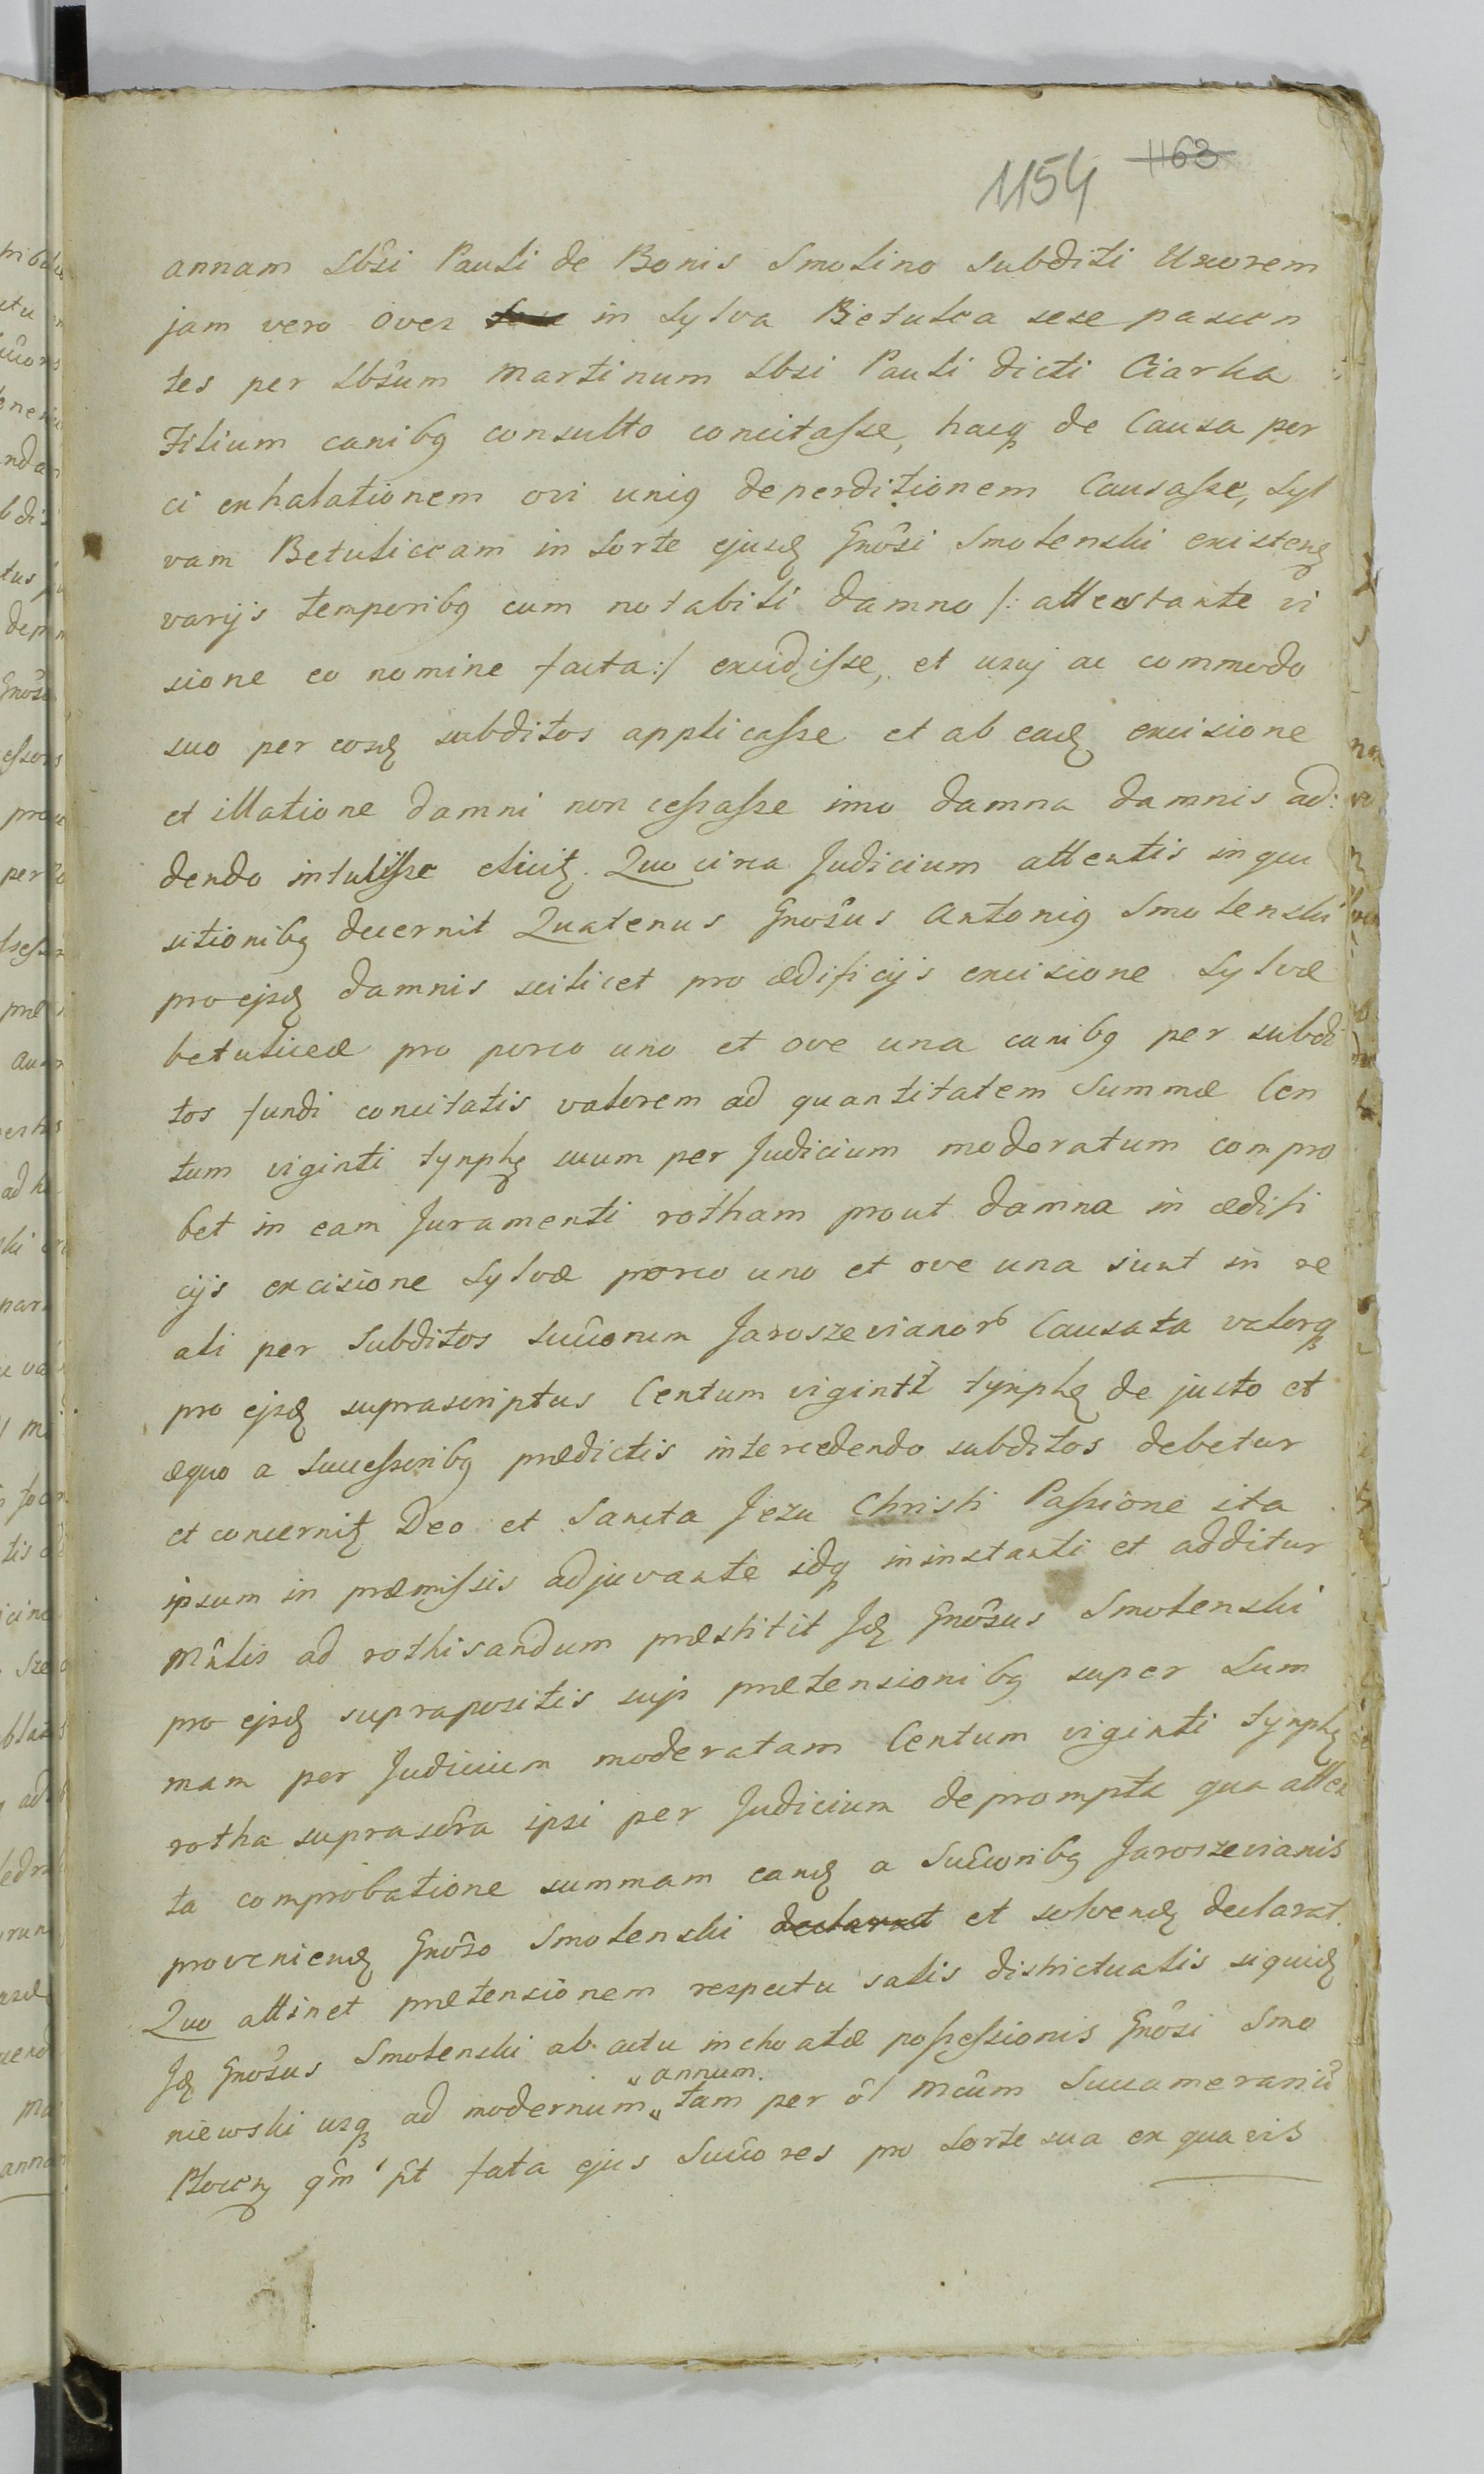 1154 1163
annam Lbsi Pauli de Bonis Smolino subditi Uxorem
jam vero oves in Sylva Betulea sese pascen
tes per Lbsum Martinum Lbsi Pauli dicti Ciarka
Filium canibꝰ consulto concitasse, hacq de Causa per
ci exhalationem ovi uniꝰ deperditionem Causasse, Syl
vam Betuliceam in Sorte ejusd Gnosi Smolenski existen
varijs temporibꝰ cum notabili damno /: attestante vi
sione eo nomine facta:/ excidisse, et usuj ac commodo
suo per eosd subditos applicasse et ab ead excisione
et illatione damni non cessasse imo damna damnis ad:
dendo intulisse elicit. Quo circa Judicium attentis inqui
sitionibꝰ decernit Quatenus Gnosus Antoniꝰ Smolenski
pro ejsd damnis scilicet pro ædificijs excisione Sylvæ
betuliceæ pro porco uno et ove una canibꝰ per subdi
tos fundi concitatis valorem ad quantitatem Summæ Cen
tum viginti tynph suum per Judicium moderatum compro
bet in eam Juramenti rotham prout damna in ædifi
cijs excisione Sylvæ porco uno et ove una sunt in re
ali per Subditos Succorum Jaroszevianor Causata valorq
pro ejsd suprascriptus Centum viginti tynph de justo et
æquo a Successoribꝰ prædictis intercedendo subditos debetur
et concernit Deo et Sancta Jezu Christi Passione ita
ipsum in præmissis adjuvante idq in instanti et additur
Mnlis ad rothisandum præstitit Jd Gnosus Smolenski
pro ejsd suprapositis suis prætensionibꝰ super Sum
mam per Judicium moderatam Centum viginti tynph
rotha suprascra ipsi per Judicium deprompta qua atten
ta comprobatione summam eand a Succoribꝰ Jaroszevianis
proveniend Gnoso Smolenski declarat et solvend declarat.
Quo attinet prætensionem respectu salis districtualis siquid
Jd Gnosus Smolenski ab actu inchoatæ possessionis Gnosi Smo
niewski usq ad modernum annum tam per ol Mcum Succamerariu
Plocen qm pt fata ejus Succores pro Sorte sua ex quavis